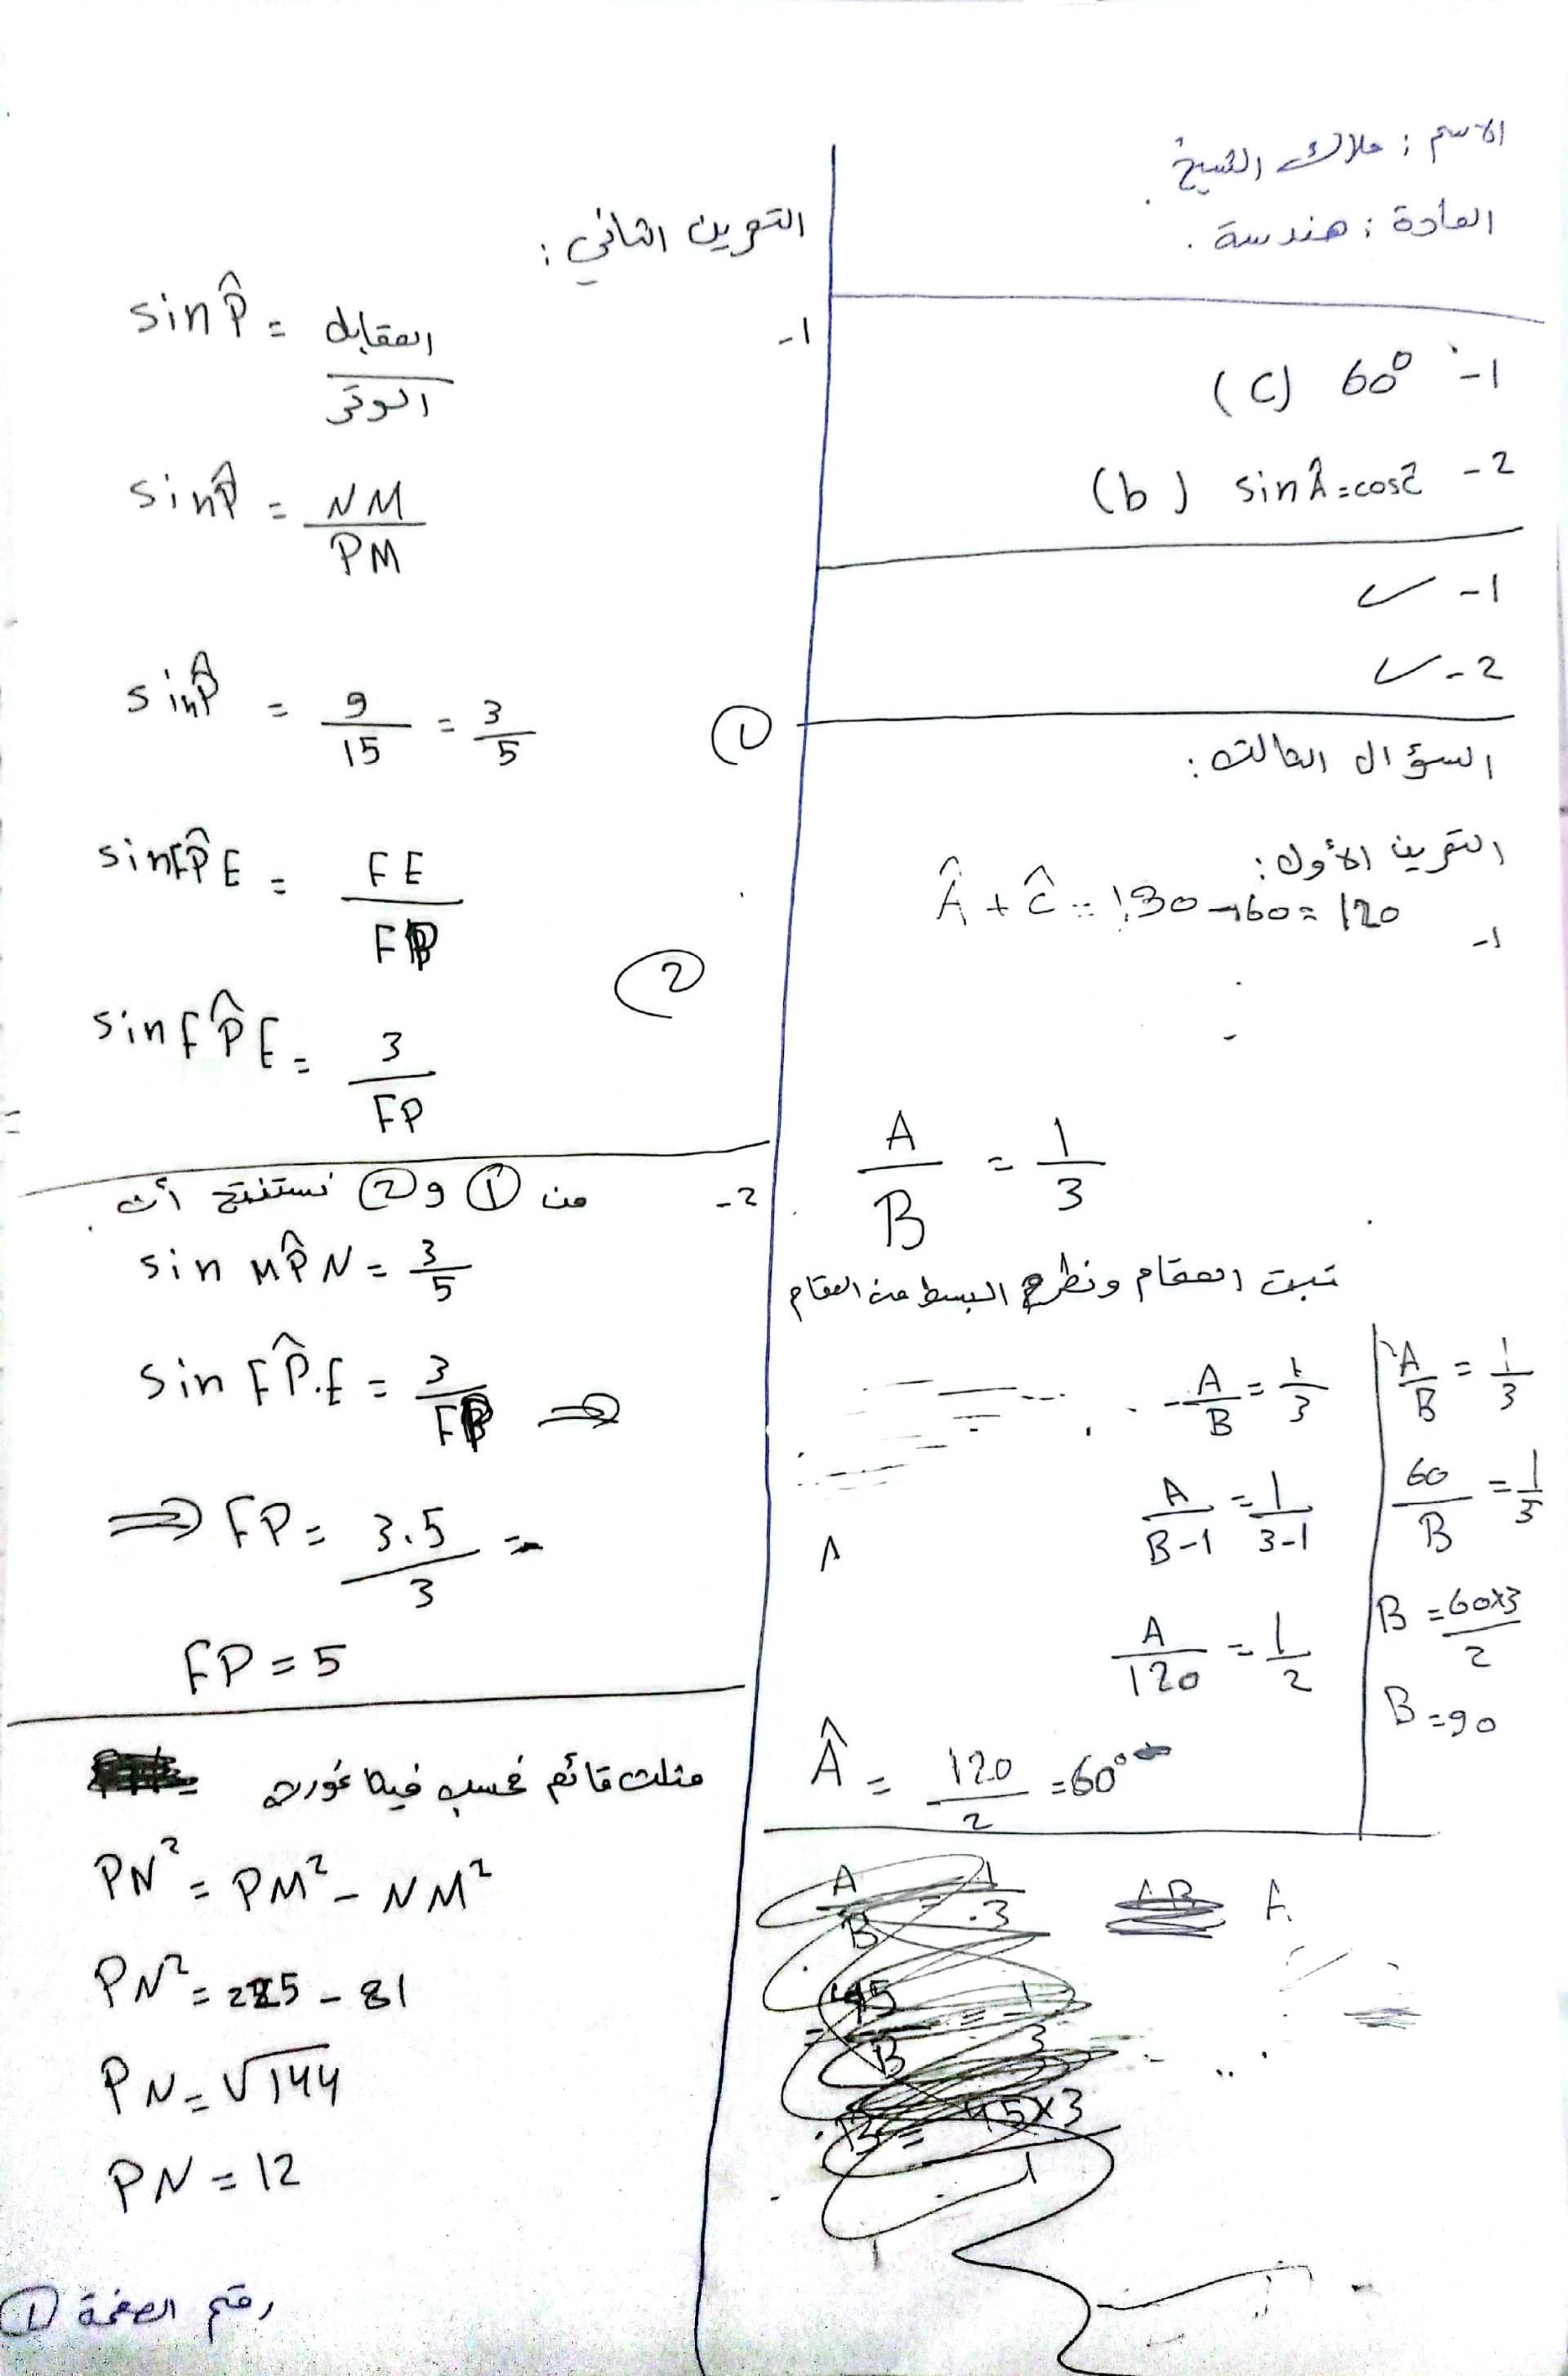 الاسم : ملاك الشيخ
المادة : هندسة .
1- 60° (c)
2- sin Â = cos Ĉ (b)
1- ✓
2- ✓
السؤال الثالث :
التمرين الأول :
1- Â + Ĉ = 180 - 60 = 120
A/B = 1/3
نبت المقام ونطرح البسط من المقام
A/B = 1/3
A/B-1 = 1/3-1
A/120 = 1/2
Â = 120/2 = 60°
A/B = 1/3
60/B = 1/3
B = 60×3/2
B = 90
التمرين الثاني :
1- sin P̂ = المقابل/الوتر
sin P̂ = NM/PM
sin P̂ = 9/15 = 3/5 ①
sin FP̂E = FE/FP
sin FP̂E = 3/FP ②
2- من ① و ② نستنتج أن
sin MP̂N = 3/5
sin FP̂.E = 3/FP ⇒
⇒ FP = 3.5/3 =
FP = 5
مثلث قائم فحسب فيثاغورث
PN² = PM² - NM²
PN² = 225 - 81
PN = √144
PN = 12
رقم الصفحة ①